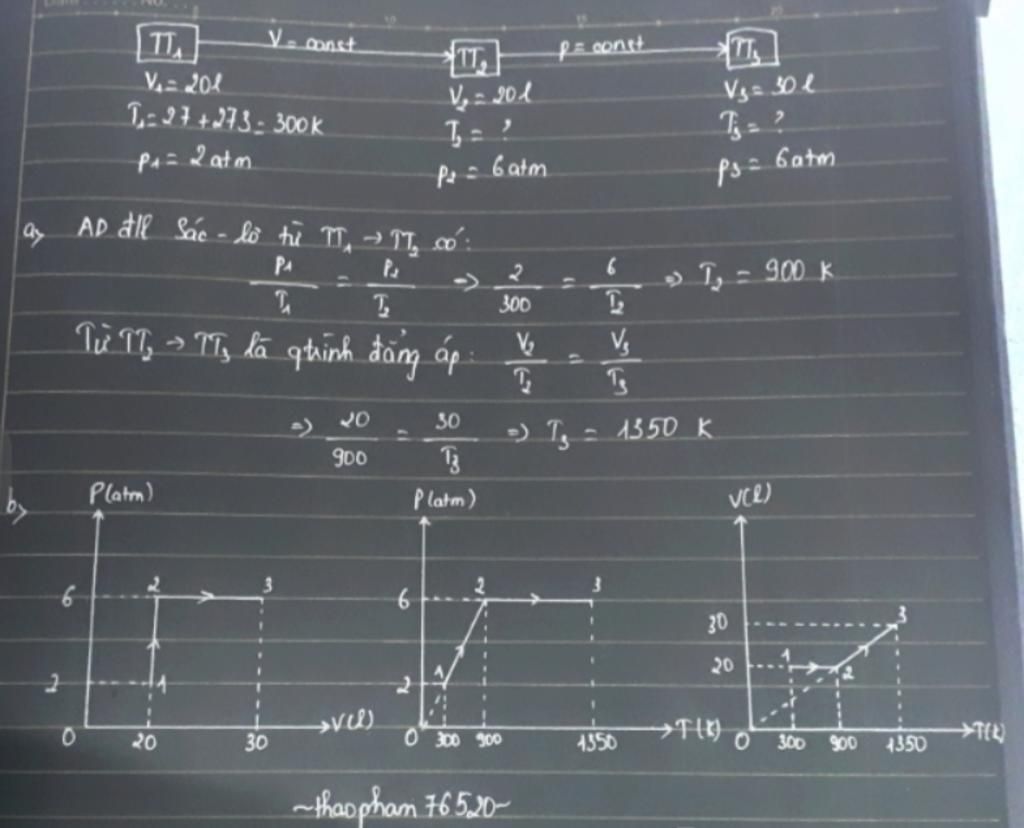 TT₁ V = const TT₂ p = const TT₃
V₁ = 20l V₂ = 20l V₃ = 30l
T₁ = 27 + 273 = 300K T₂ = ? T₃ = ?
p₁ = 2atm p₂ = 6atm p₃ = 6atm
a, AD đ/l Sác - lơ từ TT₁ → TT₂ có:
P₁/T₁ = P₂/T₂ => 2/300 = 6/T₂ => T₂ = 900 K
Từ TT₂ → TT₃ là qtrình đẳng áp: V₂/T₂ = V₃/T₃
=> 20/900 = 30/T₃ => T₃ = 1350 K
b,
P(atm)
6 2 3
2 1
0 20 30 V(l)
P(atm)
6 2 3
2 1
0 300 900 1350 T(K)
V(l)
30 3
20 1 2
0 300 900 1350 T(K)
~thaopham76520~